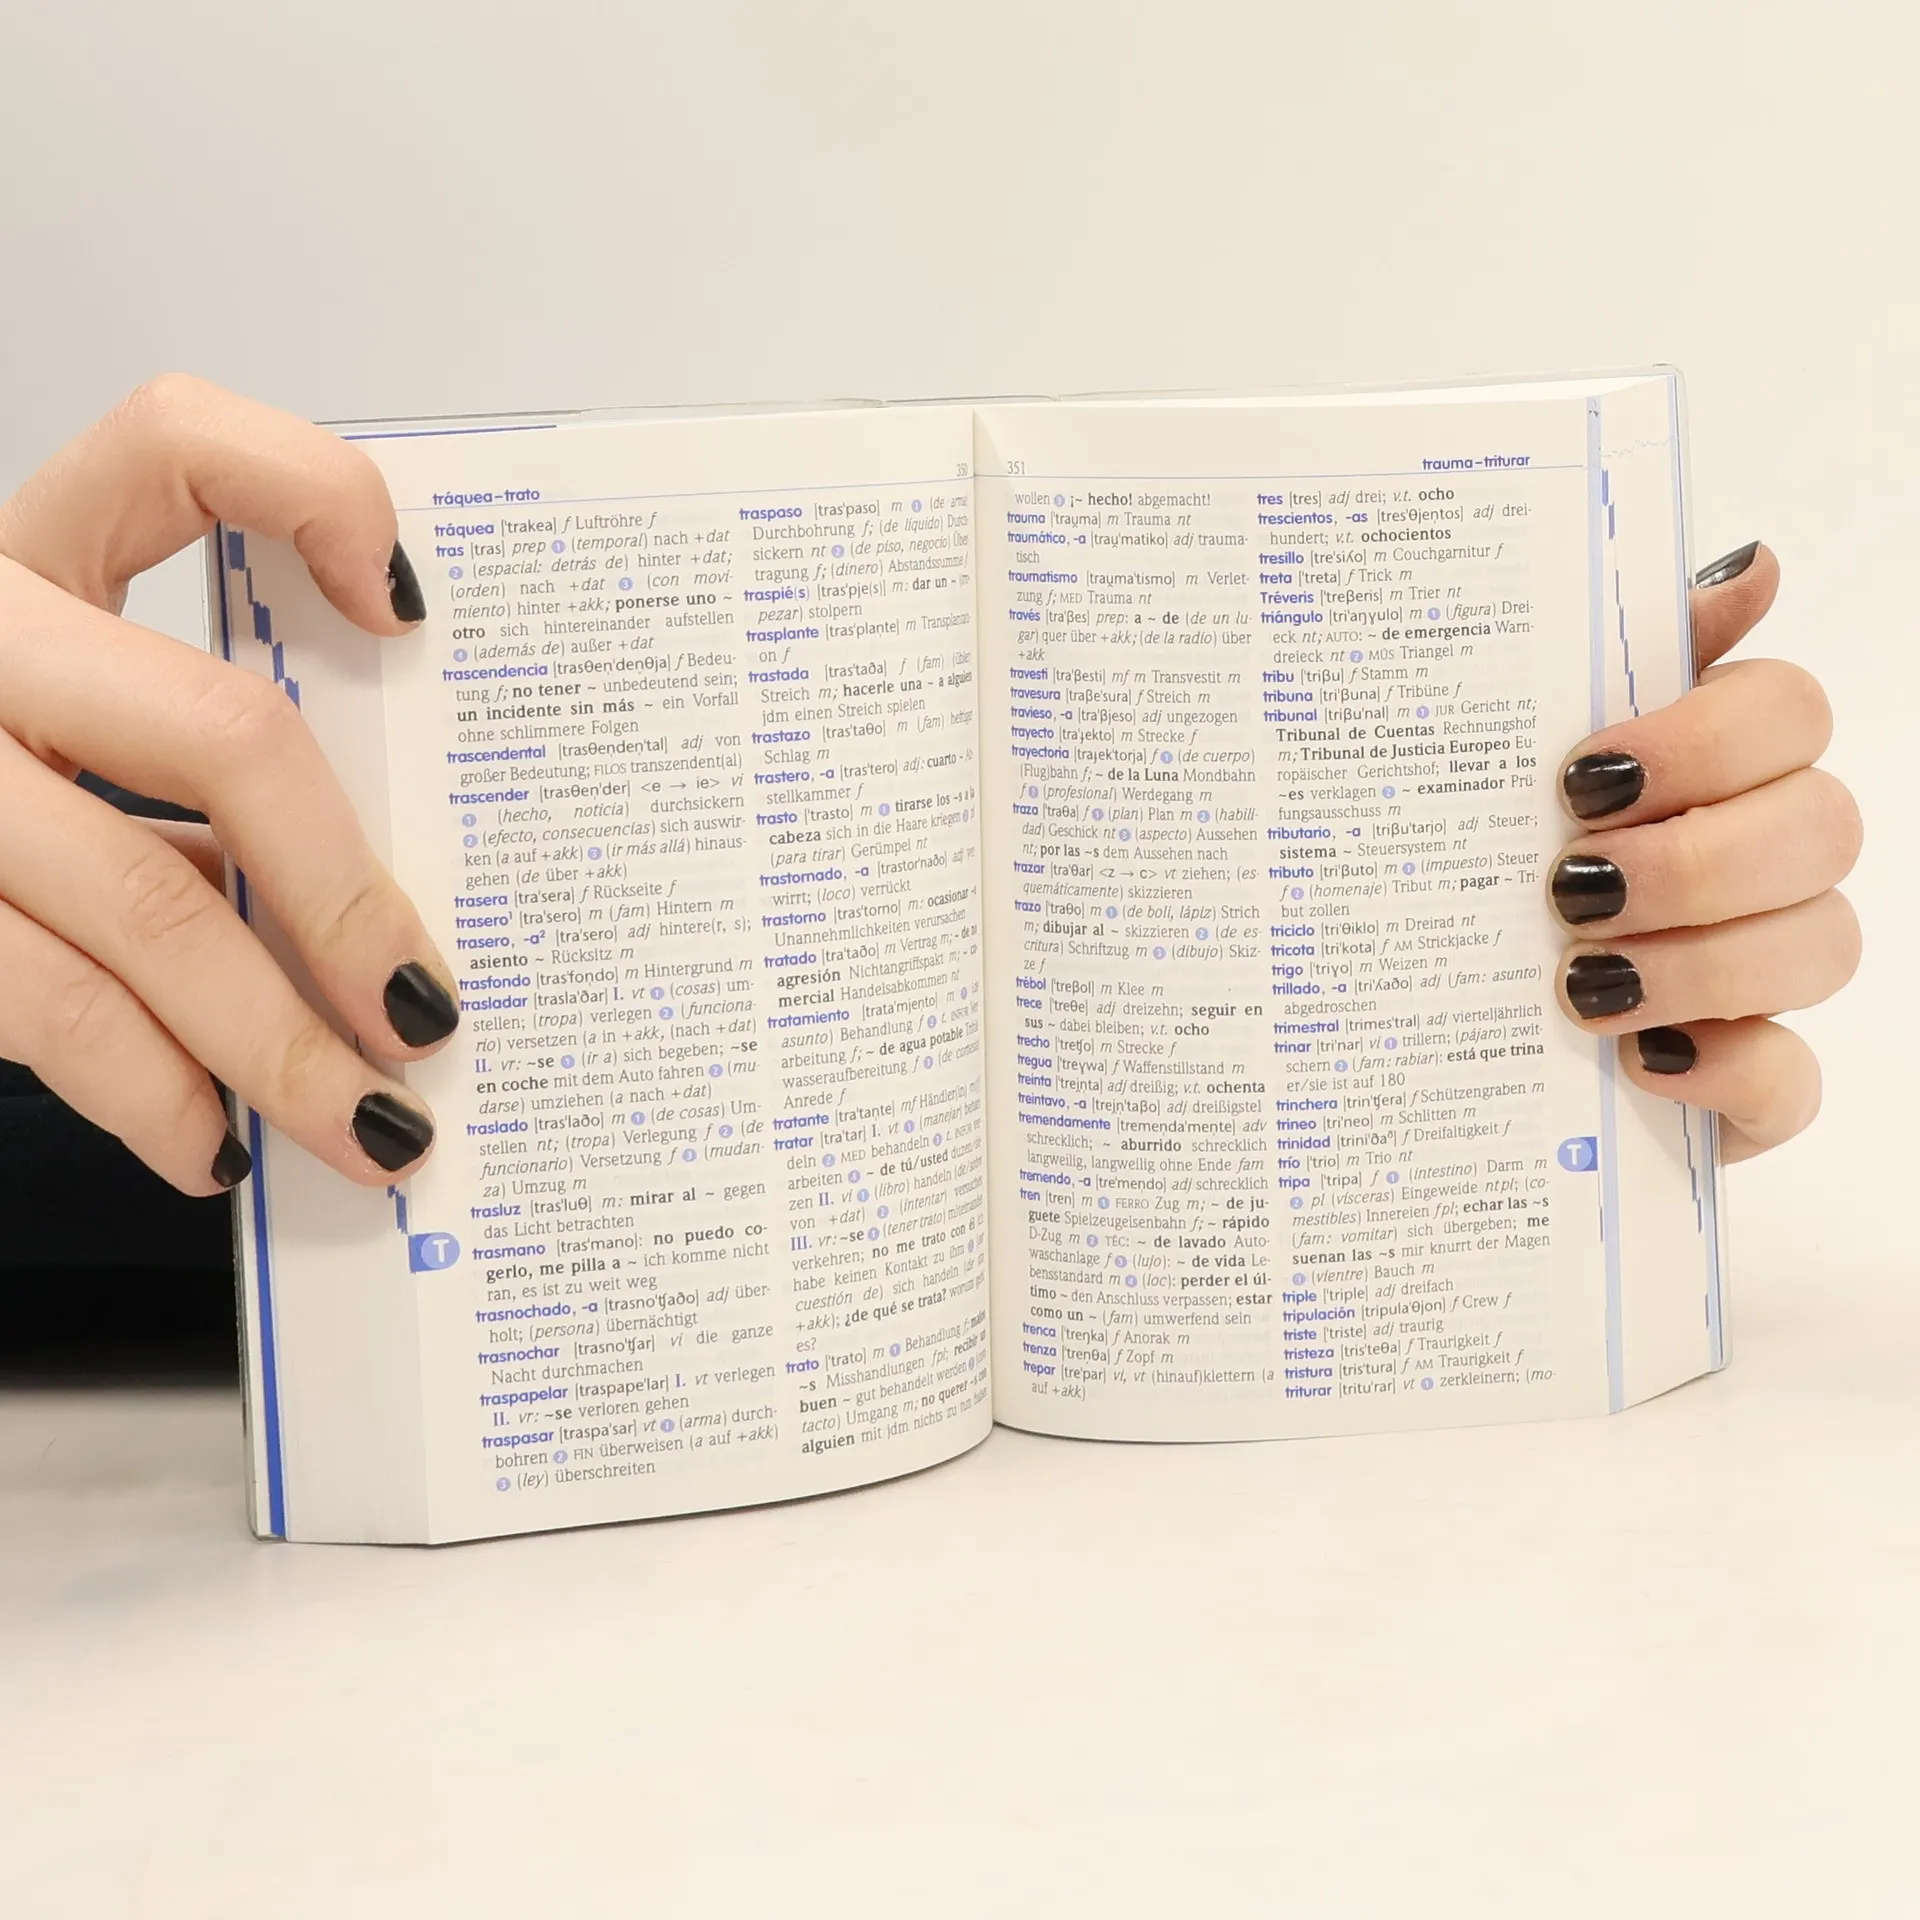 tráquea–trato
350
tráquea ['trakea] f Luftröhre f
tras [tras] prep 1 (temporal) nach +dat
2 (espacial: detrás de) hinter +dat;
(orden) nach +dat 3 (con movi-
miento) hinter +akk; ponerse uno ~
otro sich hintereinander aufstellen
4 (además de) außer +dat
trascendencia [trasθen̪'den̪θja] f Bedeu-
tung f; no tener ~ unbedeutend sein;
un incidente sin más ~ ein Vorfall
ohne schlimmere Folgen
trascendental [trasθen̪den̪'tal] adj von
großer Bedeutung; FILOS transzendent(al)
trascender [trasθen̪'der] <e → ie> vi
1 (hecho, noticia) durchsickern
2 (efecto, consecuencias) sich auswir-
ken (a auf +akk) 3 (ir más allá) hinaus-
gehen (de über +akk)
trasera [tra'sera] f Rückseite f
trasero¹ [tra'sero] m (fam) Hintern m
trasero, -a² [tra'sero] adj hintere(r, s);
asiento ~ Rücksitz m
trasfondo [tras'fon̪do] m Hintergrund m
trasladar [trasla'ðar] I. vt 1 (cosas) um-
stellen; (tropa) verlegen 2 (funciona-
rio) versetzen (a in +akk, (nach +dat)
II. vr: ~se 1 (ir a) sich begeben; ~se
en coche mit dem Auto fahren 2 (mu-
darse) umziehen (a nach +dat)
traslado [tras'laðo] m 1 (de cosas) Um-
stellen nt; (tropa) Verlegung f 2 (de
funcionario) Versetzung f 3 (mudan-
za) Umzug m
trasluz [tras'luθ] m: mirar al ~ gegen
das Licht betrachten
trasmano [tras'mano]: no puedo co-
gerlo, me pilla a ~ ich komme nicht
ran, es ist zu weit weg
trasnochado, -a [trasno'ʧaðo] adj über-
holt; (persona) übernächtigt
trasnochar [trasno'ʧar] vi die ganze
Nacht durchmachen
traspapelar [traspape'lar] I. vt verlegen
II. vr: ~se verloren gehen
traspasar [traspa'sar] vt 1 (arma) durch-
bohren 2 FIN überweisen (a auf +akk)
3 (ley) überschreiten
T
traspaso [tras'paso] m 1 (de arma)
Durchbohrung f; (de líquido) Durch-
sickern nt 2 (de piso, negocio) Über-
tragung f; (dinero) Abstandssumme f
traspié(s) [tras'pje(s)] m: dar un ~
pezar) stolpern
trasplante [tras'plan̪te] m Transplantati-
on f
trastada [tras'taða] f (fam) (übler)
Streich m; hacerle una ~ a alguien
jdm einen Streich spielen
trastazo [tras'taθo] m (fam) heftiger
Schlag m
trastero, -a [tras'tero] adj: cuarto ~ Ab-
stellkammer f
trasto ['trasto] m 1 tirarse los ~s a la
cabeza sich in die Haare kriegen
(para tirar) Gerümpel nt
trastornado, -a [trastor'naðo] adj ver-
wirrt; (loco) verrückt
trastorno [tras'torno] m: ocasionar ~s
Unannehmlichkeiten verursachen
tratado [tra'taðo] m Vertrag m; ~ de no
agresión Nichtangriffspakt m; ~ co-
mercial Handelsabkommen nt
tratamiento [trata'mjen̪to] m
asunto) Behandlung f 2 t. INFOR Ver-
arbeitung f; ~ de agua potable Trink-
wasseraufbereitung f 3 (de cortesía)
Anrede f
tratante [tra'tan̪te] mf Händler(in) m(f)
tratar [tra'tar] I. vt 1 (manejar) behan-
deln 2 MED behandeln 3 t. INFOR ver-
arbeiten 4 ~ de tú/usted duzen/sie-
zen II. vi 1 (libro) handeln (de/sobre
von +dat) 2 (intentar) versuchen
III. vr: ~se 1 (tener trato) miteinander
verkehren; no me trato con él ich
habe keinen Kontakt zu ihm
cuestión de) sich handeln (de um
+akk); ¿de qué se trata? worum geht
es?
trato ['trato] m 1 Behandlung f; malos
~s Misshandlungen fpl; recibir un
buen ~ gut behandelt werden 2 (con-
tacto) Umgang m; no querer ~s con
alguien mit jdm nichts zu tun haben
351
trauma–triturar
wollen 3 ¡~ hecho! abgemacht!
trauma ['trau̯ma] m Trauma nt
traumático, -a [trau̯'matiko] adj trauma-
tisch
traumatismo [trau̯ma'tismo] m Verlet-
zung f; MED Trauma nt
través [tra'βes] prep: a ~ de (de un lu-
gar) quer über +akk; (de la radio) über
+akk
travesti [tra'βesti] mf m Transvestit m
travesura [traβe'sura] f Streich m
travieso, -a [tra'βjeso] adj ungezogen
trayecto [tra'ʝekto] m Strecke f
trayectoria [traʝek'torja] f 1 (de cuerpo)
(Flug)bahn f; ~ de la Luna Mondbahn
f 2 (profesional) Werdegang m
traza ['traθa] f 1 (plan) Plan m 2 (habili-
dad) Geschick nt 3 (aspecto) Aussehen
nt; por las ~s dem Aussehen nach
trazar [tra'θar] <z → c> vt ziehen; (es-
quemáticamente) skizzieren
trazo ['traθo] m 1 (de boli, lápiz) Strich
m; dibujar al ~ skizzieren 2 (de es-
critura) Schriftzug m 3 (dibujo) Skiz-
ze f
trébol ['treβol] m Klee m
trece ['treθe] adj dreizehn; seguir en
sus ~ dabei bleiben; v.t. ocho
trecho ['treʧo] m Strecke f
tregua ['treɣwa] f Waffenstillstand m
treinta ['trei̯n̪ta] adj dreißig; v.t. ochenta
treintavo, -a [trei̯n̪'taβo] adj dreißigstel
tremendamente [tremen̪da'men̪te] adv
schrecklich; ~ aburrido schrecklich
langweilig, langweilig ohne Ende fam
tremendo, -a [tre'men̪do] adj schrecklich
tren [tren] m 1 FERRO Zug m; ~ de ju-
guete Spielzeugeisenbahn f; ~ rápido
D-Zug m 2 TÉC: ~ de lavado Auto-
waschanlage f 3 (lujo): ~ de vida Le-
bensstandard m 4 (loc): perder el úl-
timo ~ den Anschluss verpassen; estar
como un ~ (fam) umwerfend sein
trenca ['treŋka] f Anorak m
trenza ['tren̪θa] f Zopf m
trepar [tre'par] vi, vt (hinauf)klettern (a
auf +akk)
tres [tres] adj drei; v.t. ocho
trescientos, -as [tres'θjen̪tos] adj drei-
hundert; v.t. ochocientos
tresillo [tre'siʎo] m Couchgarnitur f
treta ['treta] f Trick m
Tréveris ['treβeris] m Trier nt
triángulo [tri'aŋɣulo] m 1 (figura) Drei-
eck nt; AUTO: ~ de emergencia Warn-
dreieck nt 2 MÚS Triangel m
tribu ['triβu] f Stamm m
tribuna [tri'βuna] f Tribüne f
tribunal [triβu'nal] m 1 JUR Gericht nt;
Tribunal de Cuentas Rechnungshof
m; Tribunal de Justicia Europeo Eu-
ropäischer Gerichtshof; llevar a los
~es verklagen 2 ~ examinador Prü-
fungsausschuss m
tributario, -a [triβu'tarjo] adj Steuer-;
sistema ~ Steuersystem nt
tributo [tri'βuto] m 1 (impuesto) Steuer
f 2 (homenaje) Tribut m; pagar ~ Tri-
but zollen
triciclo [tri'θiklo] m Dreirad nt
tricota [tri'kota] f AM Strickjacke f
trigo ['triɣo] m Weizen m
trillado, -a [tri'ʎaðo] adj (fam: asunto)
abgedroschen
trimestral [trimes'tral] adj vierteljährlich
trinar [tri'nar] vi 1 trillern; (pájaro) zwit-
schern 2 (fam: rabiar): está que trina
er/sie ist auf 180
trinchera [trin'ʧera] f Schützengraben m
trineo [tri'neo] m Schlitten m
trinidad [trini'ðaᵈ] f Dreifaltigkeit f
trío ['trio] m Trio nt
tripa ['tripa] f 1 (intestino) Darm m
2 pl (vísceras) Eingeweide ntpl; (co-
mestibles) Innereien fpl; echar las ~s
(fam: vomitar) sich übergeben; me
suenan las ~s mir knurrt der Magen
3 (vientre) Bauch m
triple ['triple] adj dreifach
tripulación [tripula'θjon] f Crew f
triste ['triste] adj traurig
tristeza [tris'teθa] f Traurigkeit f
tristura [tris'tura] f AM Traurigkeit f
triturar [tritu'rar] vt 1 zerkleinern; (mo-
T